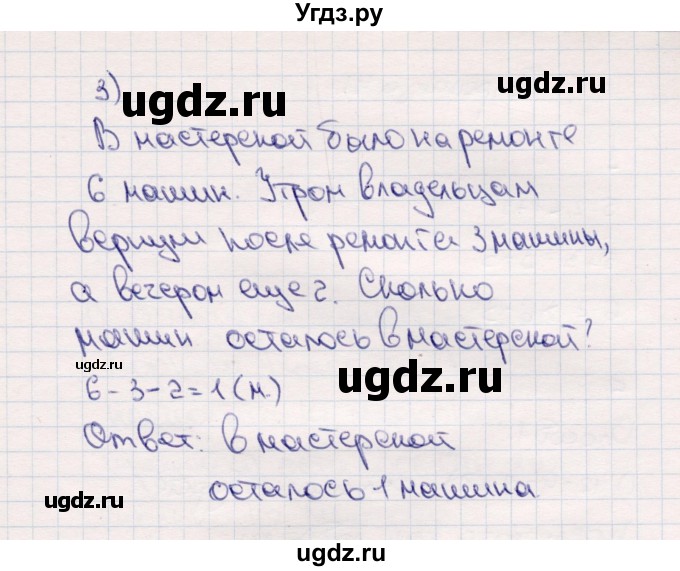 Угдз.ру
3)
ugdz.ru
В мастерской было на ремонте
6 машин. Утром владельцам
вернули после ремонта 3 машины,
а вечером еще 2. Сколько
машин осталось в мастерской?
ugdz.ru
6-3-2=1 (м.)
ugdz.ru
Ответ: в мастерской
осталось 1 машина
ugdz.ru
ugdz.ru